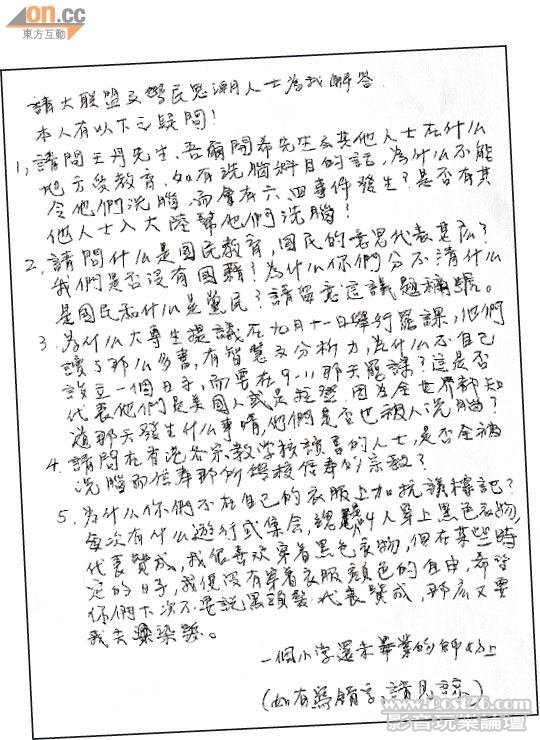 on.cc
東方互動
請大联盟及學民思潮人士為我解答
本人有以下之疑問!
1, 請問王丹先生、吾爾開希先生及其他人士在什么
地方受教育,如有洗腦科目的話,為什么不能
令他們洗腦,而會有六、四事件發生?是否有其
他人士入大陸幫他們洗腦!
2. 請問什么是國民教育,國民的意思代表甚広?
我們是否沒有國籍?為什么你們分不清什么
是國民和什么是黨民?請留意這議題稱號。
3. 為什么大專生提議在九月十一日舉行罷課,他們
讀了那么多書,有智慧及分析力,為什么不自己
設立一個日子,而要在9.11那天罷課?這是否
代表他們是美國人或是拉登,因為全世界都知
道那天發生什么事情,他們是否也被人洗腦?
4. 請問在香港各宗教学校讀書的人士,是否全被
洗腦而信奉那所學校信奉的宗教?
5. 為什么你們不在自己的衣服上加抗議標記?
每次有什么遊行或集会,總叫人穿上黑色衣物,
代表贊成,我很喜欢穿着黑色衣物,但在某些時
定的日子,我便沒有穿着衣服顏色的自由,希望
你們下次不是說黑頭髮代表贊成,那広又要
我去染髮。
一個小学還未畢業的師奶上
(如有寫錯字,請見諒)
www.post76.com
影音玩樂論壇